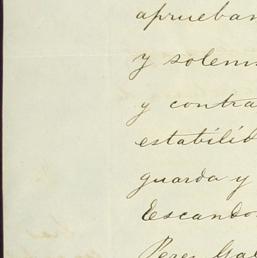 aprueban
y solem
y contra
estabilid
guarda y
Escando
Perez Gal